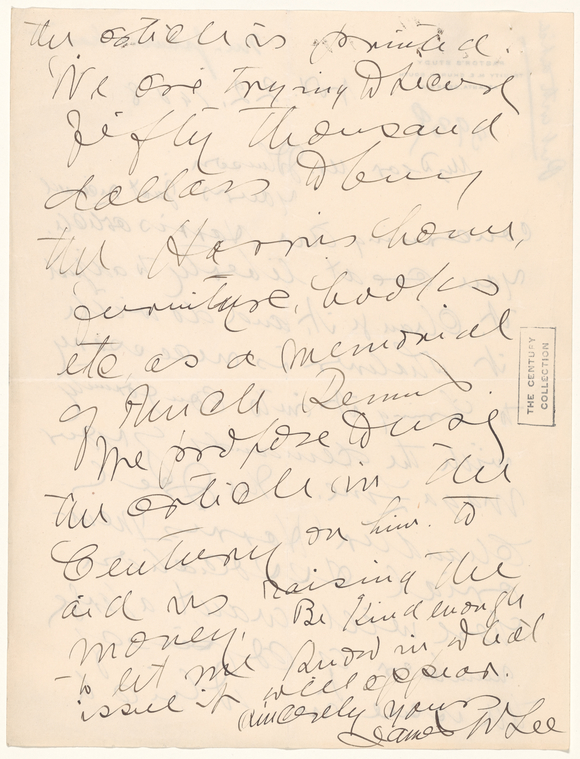 the article is printed.
We are trying to secure
fifty thousand
dollars to buy
the Harris home,
furniture, books
etc, as a memorial
of Uncle Remus.
We propose to use
the article in the
Century on him to
aid us raising the
money. Be kind enough
to let me know in what
issue it will appear.
Sincerely yours
James W Lee
THE CENTURY
COLLECTION